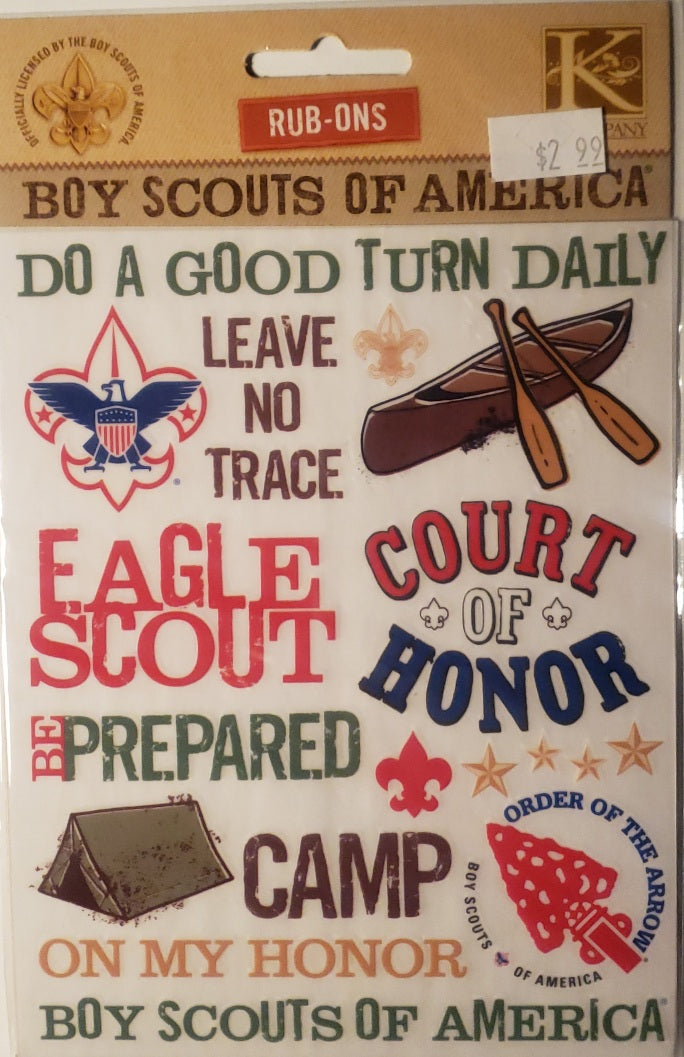 OFFICIALLY LICENSED BY THE BOY SCOUTS OF AMERICA
K
PANY
RUB-ONS
$2 99
BOY SCOUTS OF AMERICA
DO A GOOD TURN DAILY
LEAVE
NO
TRACE
EAGLE
SCOUT
COURT
OF
HONOR
BE PREPARED
CAMP
ORDER OF THE ARROW
BOY SCOUTS OF AMERICA
ON MY HONOR
BOY SCOUTS OF AMERICA